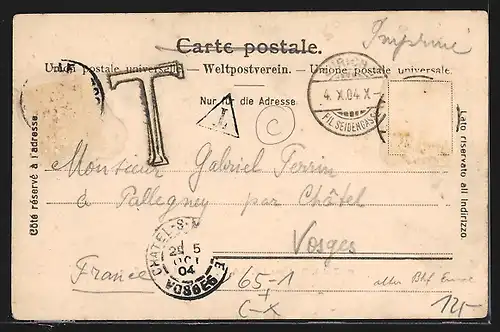 Carte postale.
Imprimé
Union postale universelle. — Weltpostverein. — Unione postale universale.
Nur für die Adresse
T
T
C
ZÜRICH
4. X. 04. X
FIL. SEIDENGASSE
Côté réservé à l'adresse.
Lato riservato all indirizzo.
Monsieur Gabriel Perrin
à Pallegney par Châtel
Vosges
France
CHATEL-S-
5
OCT
04
VOSGES
65-1
C-X
12.-